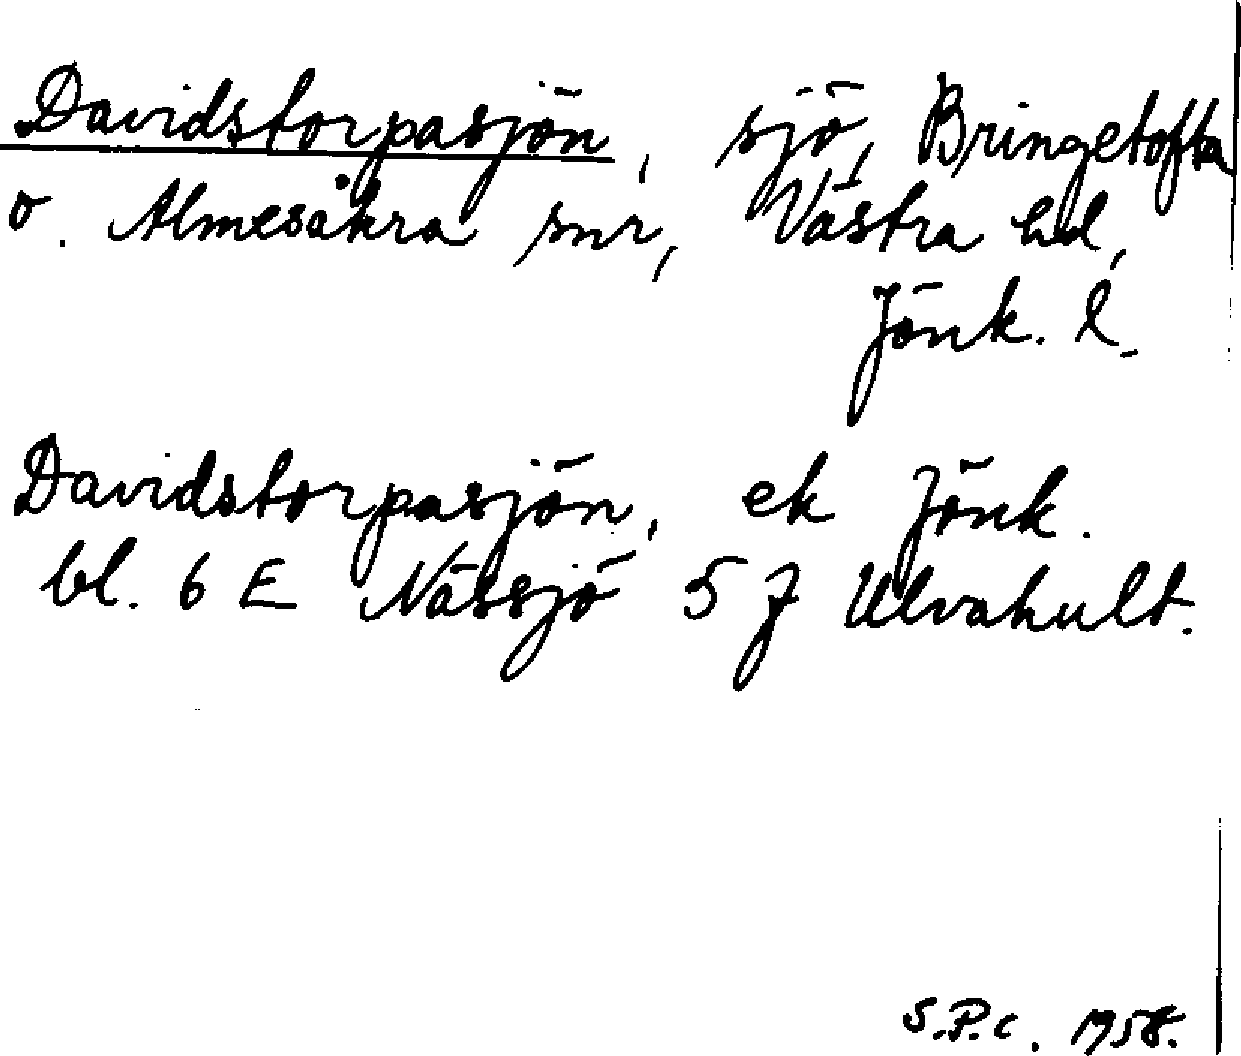 Davidstorpasjön, sjö, Bringetofta
o. Almesåkra snr, Västra hd,
Jönk. l.
Davidstorpasjön, ek Jönk.
bl. 6 E Nässjö 5 J Ulvahult.
S.P.C. 1958.